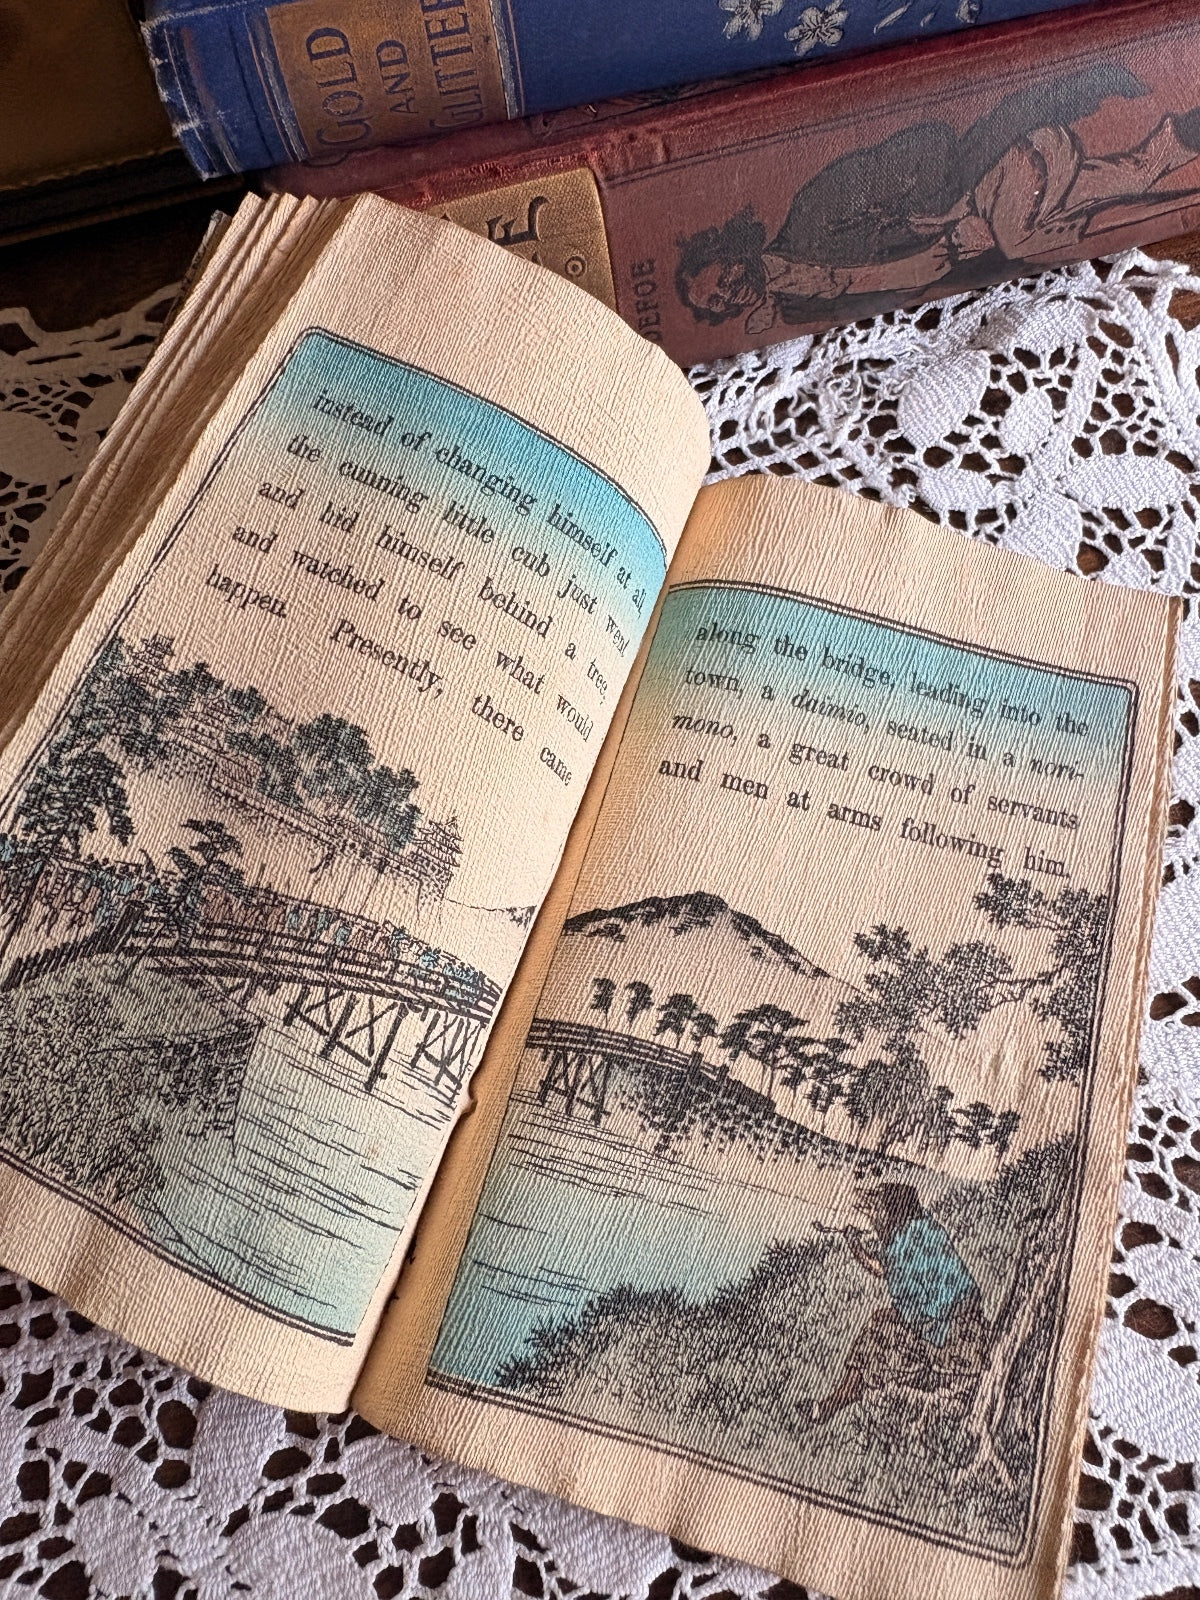 GOLD
AND
GLITTER
E
DEFOE
instead of changing himself at all,
the cunning little cub just went
and hid himself behind a tree,
and watched to see what would
happen. Presently, there came
along the bridge, leading into the
town, a daimio, seated in a nori-
mono, a great crowd of servants
and men at arms following him.